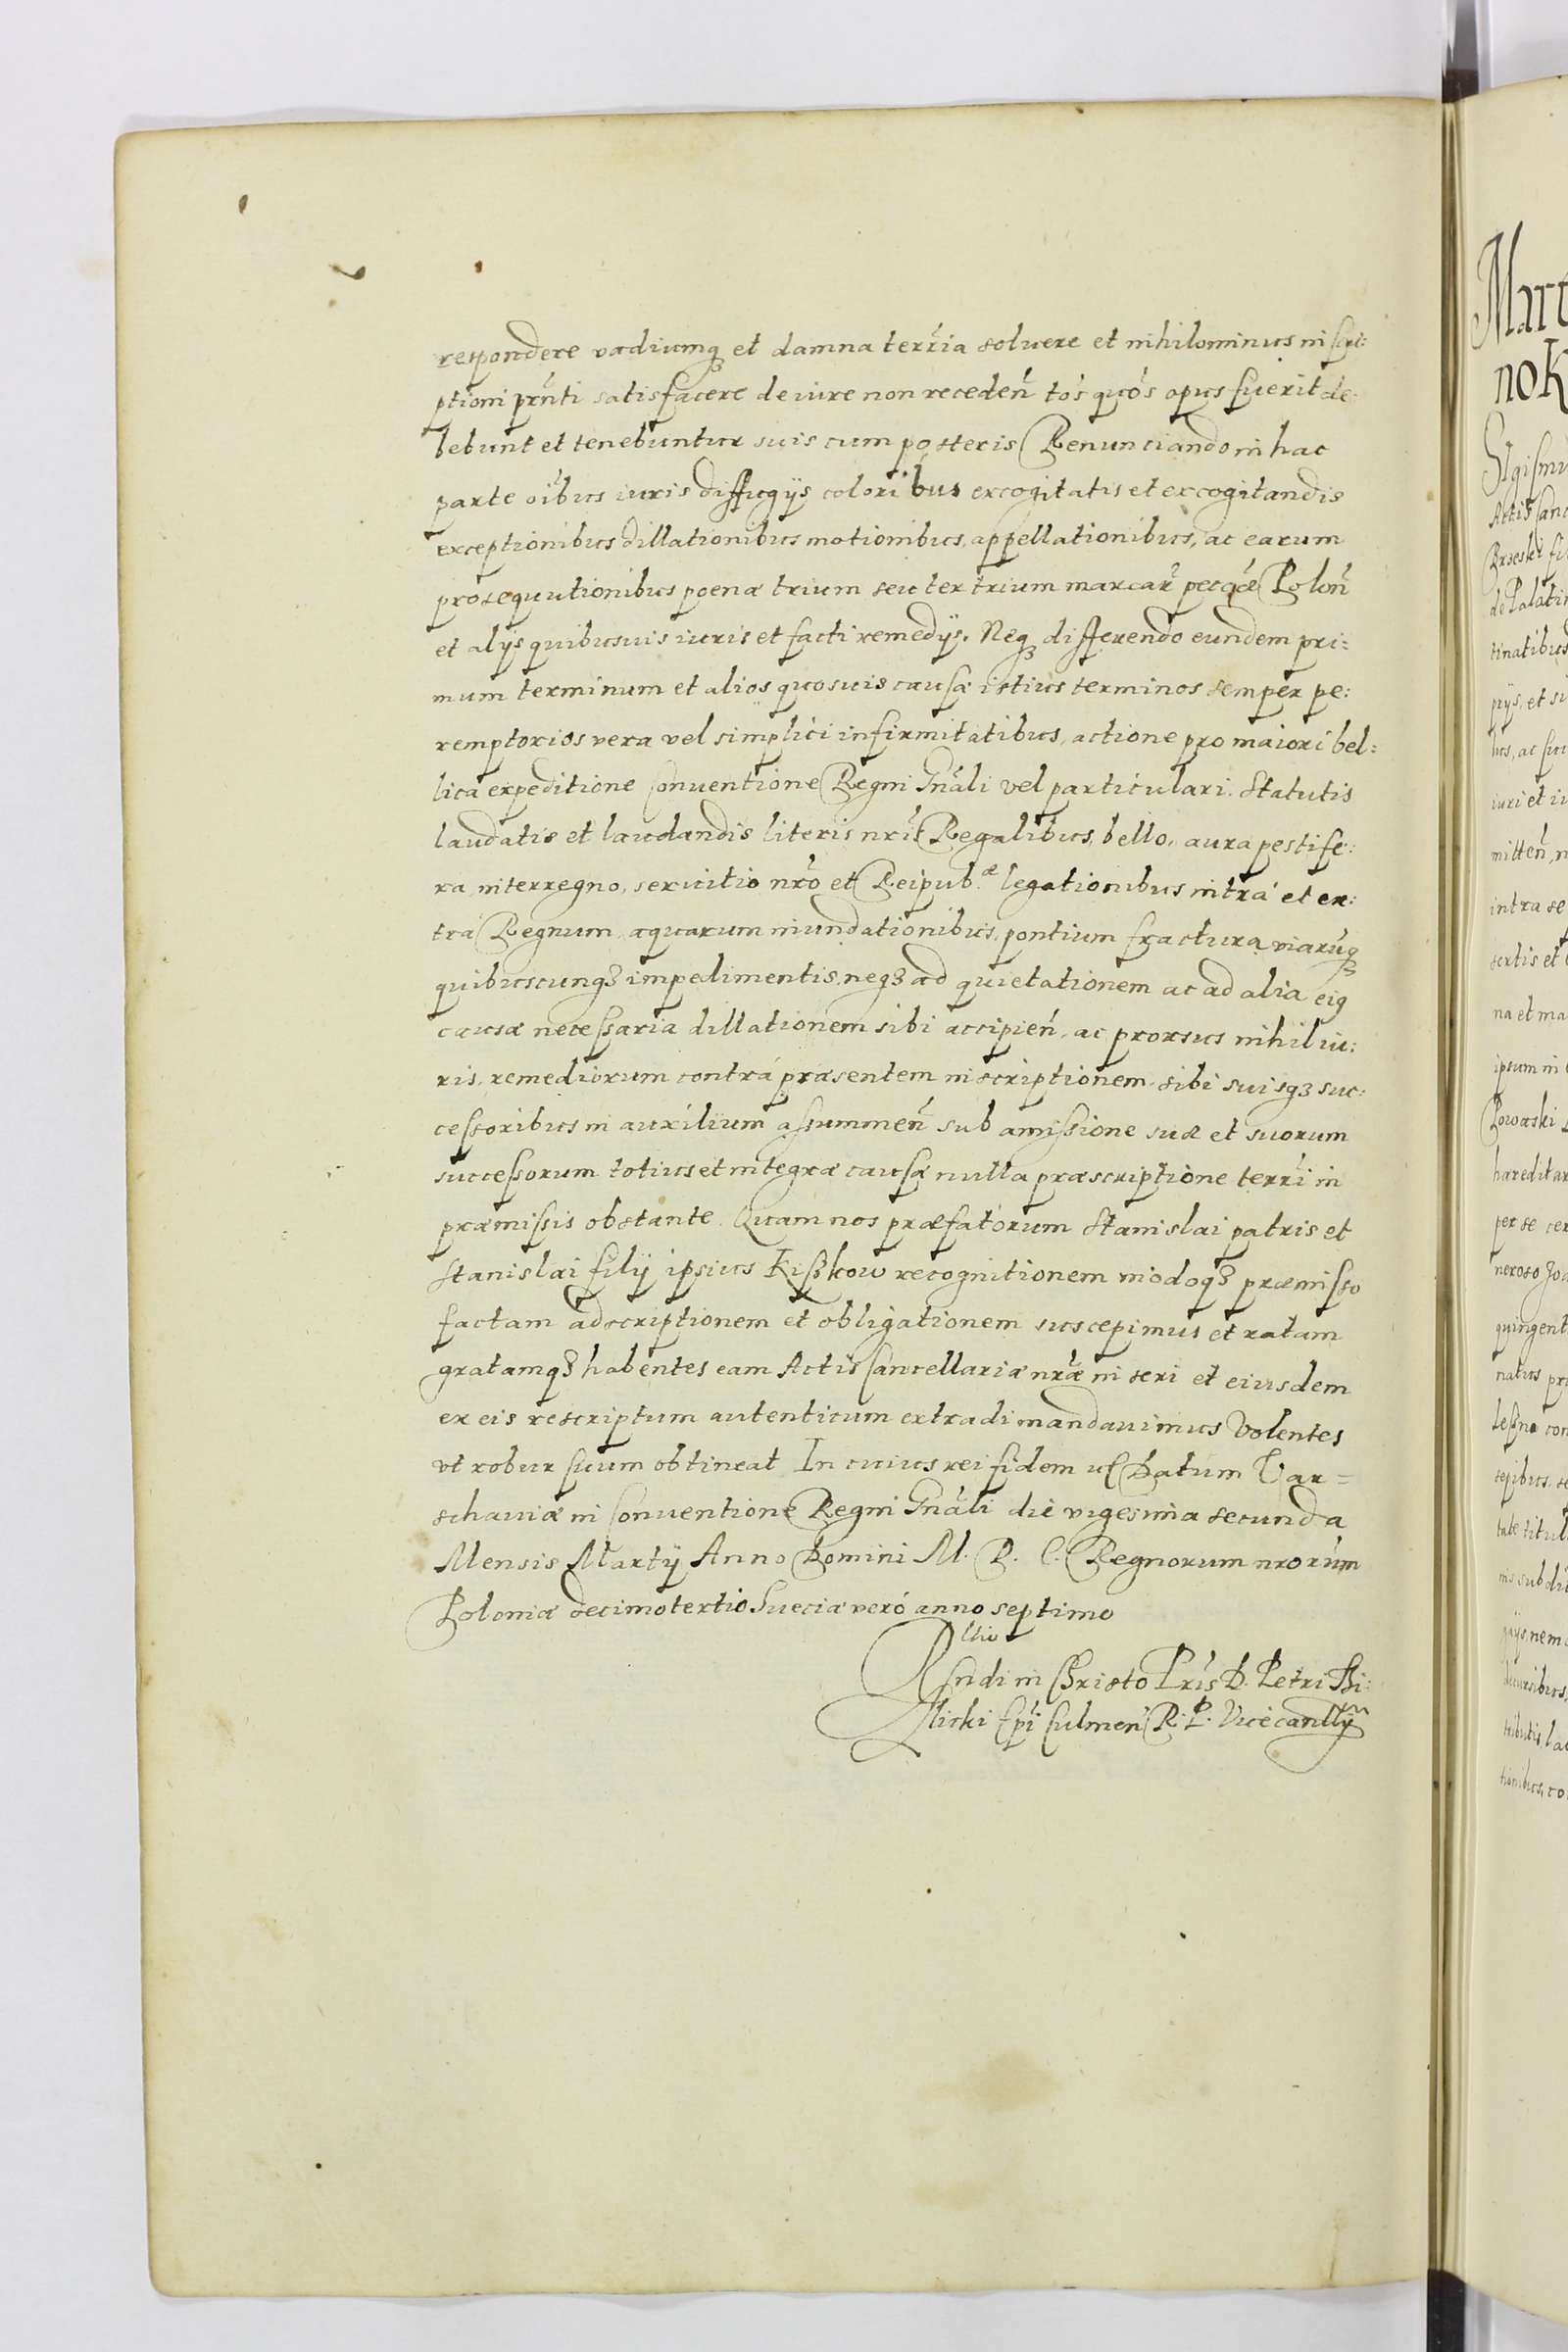 respondere vadiumq₃ et damna terr̃ia soluere et nihilominus inscri:
ptioni pr̃nti satisfacere de iure non receden̄ tós quós opus fuerit de:
bebunt et tenebuntur suis cum posteris Renunciando in hac
parte oĩbus iuris diffugijs coloribus excogitatis et excogitandis
exceptionibus dillationibus motionibus, appellationibus, ac earum
prosequutionibus poenæ trium seu ter trium marcar̃ pecq̃æ Polon̄
et alijs quibusuis iuris et facti remedijs. Neq₃ differendo eundem pri:
mum terminum et alios quosuis causæ istius terminos semper pe:
remptorios vera vel simplici infirmitatibus, actione pro maiori bel:
lica expeditione Conuentione Regni Gñali vel particulari. Statutis
laudatis et laudandis literis nr̃is Regalibus, bello, aura pestife:
ra, interregno, seruitio nr̃o et Reipub.æ legationibus intrà et ex:
trà Regnum, aquarum inundationibus, pontium fractura, viarũq₃
quibuscunq₃ impedimentis, neq₃ ad quietationem ac ad alia eiq
causæ necessaria dillationem sibi accipien̄, ac prorsus nihil iu:
ris, remediorum contrà præsentem inscriptionem, sibi suisq₃ suc:
cessoribus in auxilium assummen̄ sub amissione suæ et suorum
successorum totius et integræ causæ nulla præscriptione terr̃i in
præmissis obstante. Quam nos præfatorum Stanislai patris et
Stanislai filij ipsius Kisskow recognitionem modoq₃ præmisso
factam adscriptionem et obligationem suscepimus et ratam
gratamq₃ habentes eam Actis Cancellariæ nr̃æ inseri et eiusdem
ex eis rescriptum autenticum extradi mandauimus Volentes
vt robur suum obtineat. In cuius rei fidem ul Datum Var=
schauiæ in Conuentione Regni Gñali die vigesima secunda
Mensis Martij Anno Domini M. D. C. Regnorum nrorũm
Poloniæ decimotertio Sueciæ verò anno septimo
Rltio
Rsndi in Christo Pr̃is D. Petri Thi:
Ilicki Epĩ Culmen̄ R. P. Vicecancllrij
Mart
nok
Sigismu
Actis Canc
Brzeski fi
de Palatin
tinatibus
pijs, et si
bus, ac suc
iuri et iu
mitten̄, n
intra se
sertis et
na et ma
ipsum in
Powaski
hæreditar
per se cer
neroso Joa
quingent
natus pri
Lessno con
sepibus, se
tate titul
nis subdit
tributis, la
tionibus, co